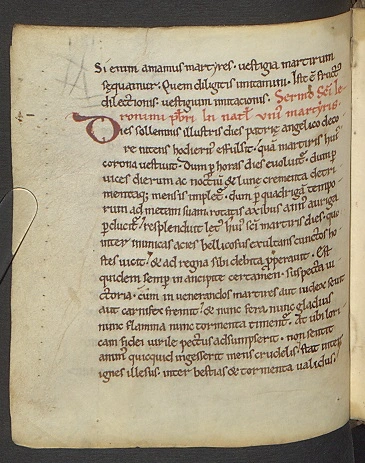 Si enim amamus martyres. vestigia martirum
sequamur. Quem diligitis imitamini. Iste ē fruct᷒
dilectionis. vestigium imitationis. Sermo Sc̄i Ie
ronimi pb̄ri In natl̄ uni᷒ martyris.
Dies sollennis illustris dies patrię angelico deco
re nitens hodiernus effulsit. quā martiris hui᷒
corona vestivit. Dum p horas dies evoluit. dum p
vices dierum ac noctiū & lunę crementa detri
mentaq; mensis implet. dum p quadrigā tempo
rum ad metam suam rotatis axibus ann᷒ auriga
pducit. resplenduit let᷒ hui᷒ sc̄i martiris dies. quo
inter inimicas acies bellicosus exultans cunctos ho
stes vicit. & ad regna sibi debita pperavit. Est
quidem semp in ancipite certamen. suspecta vi
ctoria. cum in venerandos martyres aut iudex sevit
aut carnifex fremit. & nunc fera nunc gladius
nunc flamma nunc tormenta timent᷒. At ubi lori
cam fidei virile pectus adsumpserit. non sentit
anim᷒ quicquid ingesserit mens crudelis. stat inter
ignes illesus. inter bestias & tormenta validus.